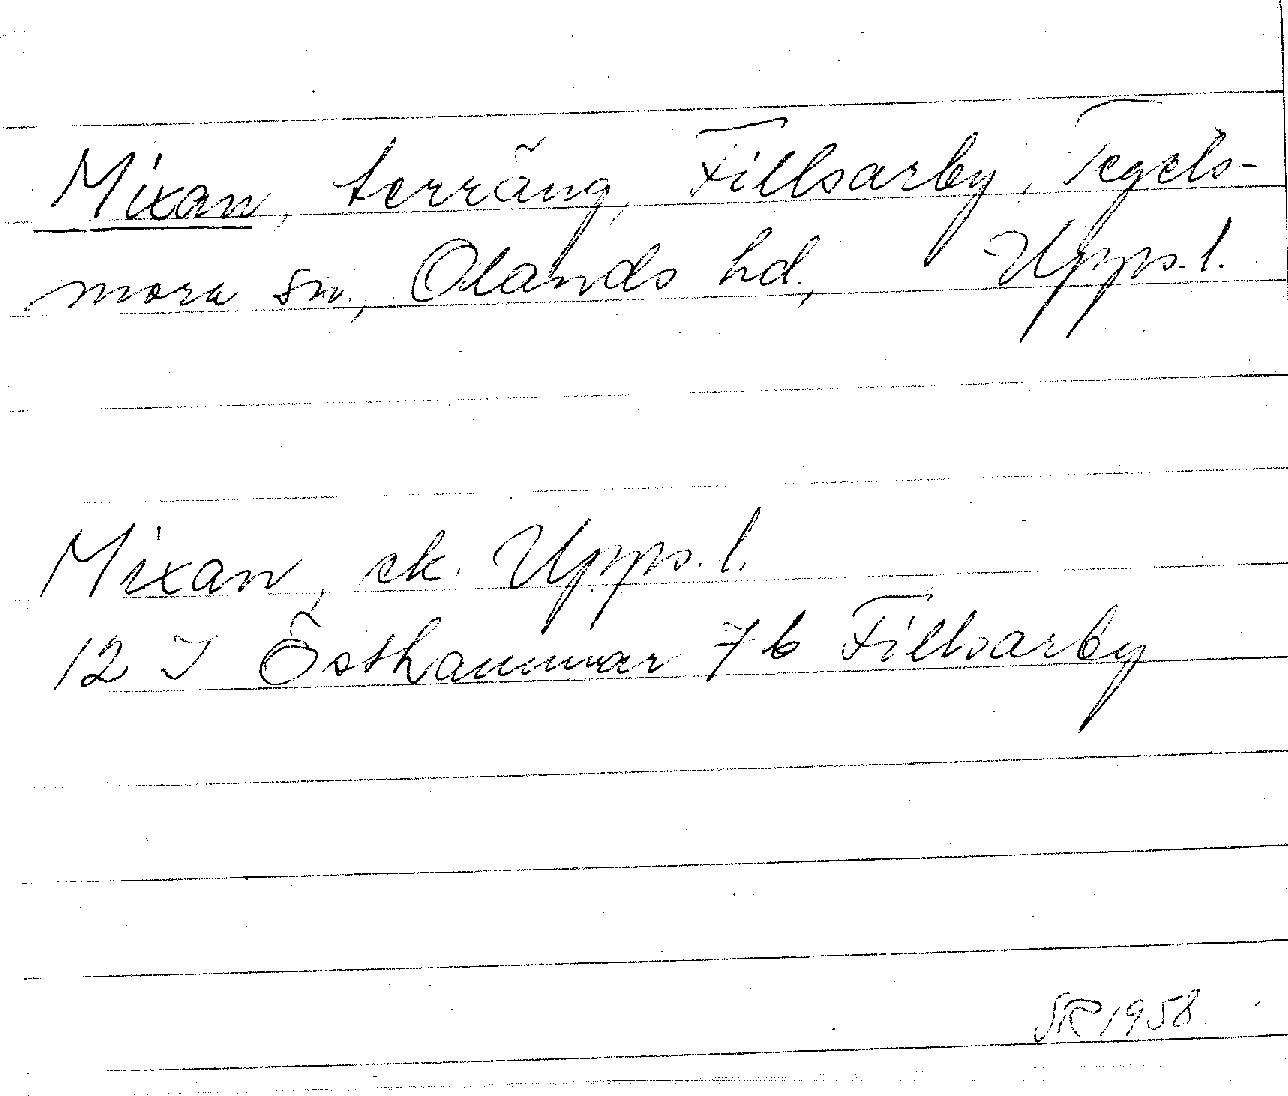 Mixan, terräng, Fillsarby, Tegels-
mora sn., Olands hd., Upps. l.
Mixan, ek. Upps. l.
12 I Östhammar 7 b Fillsarby
SR 1958